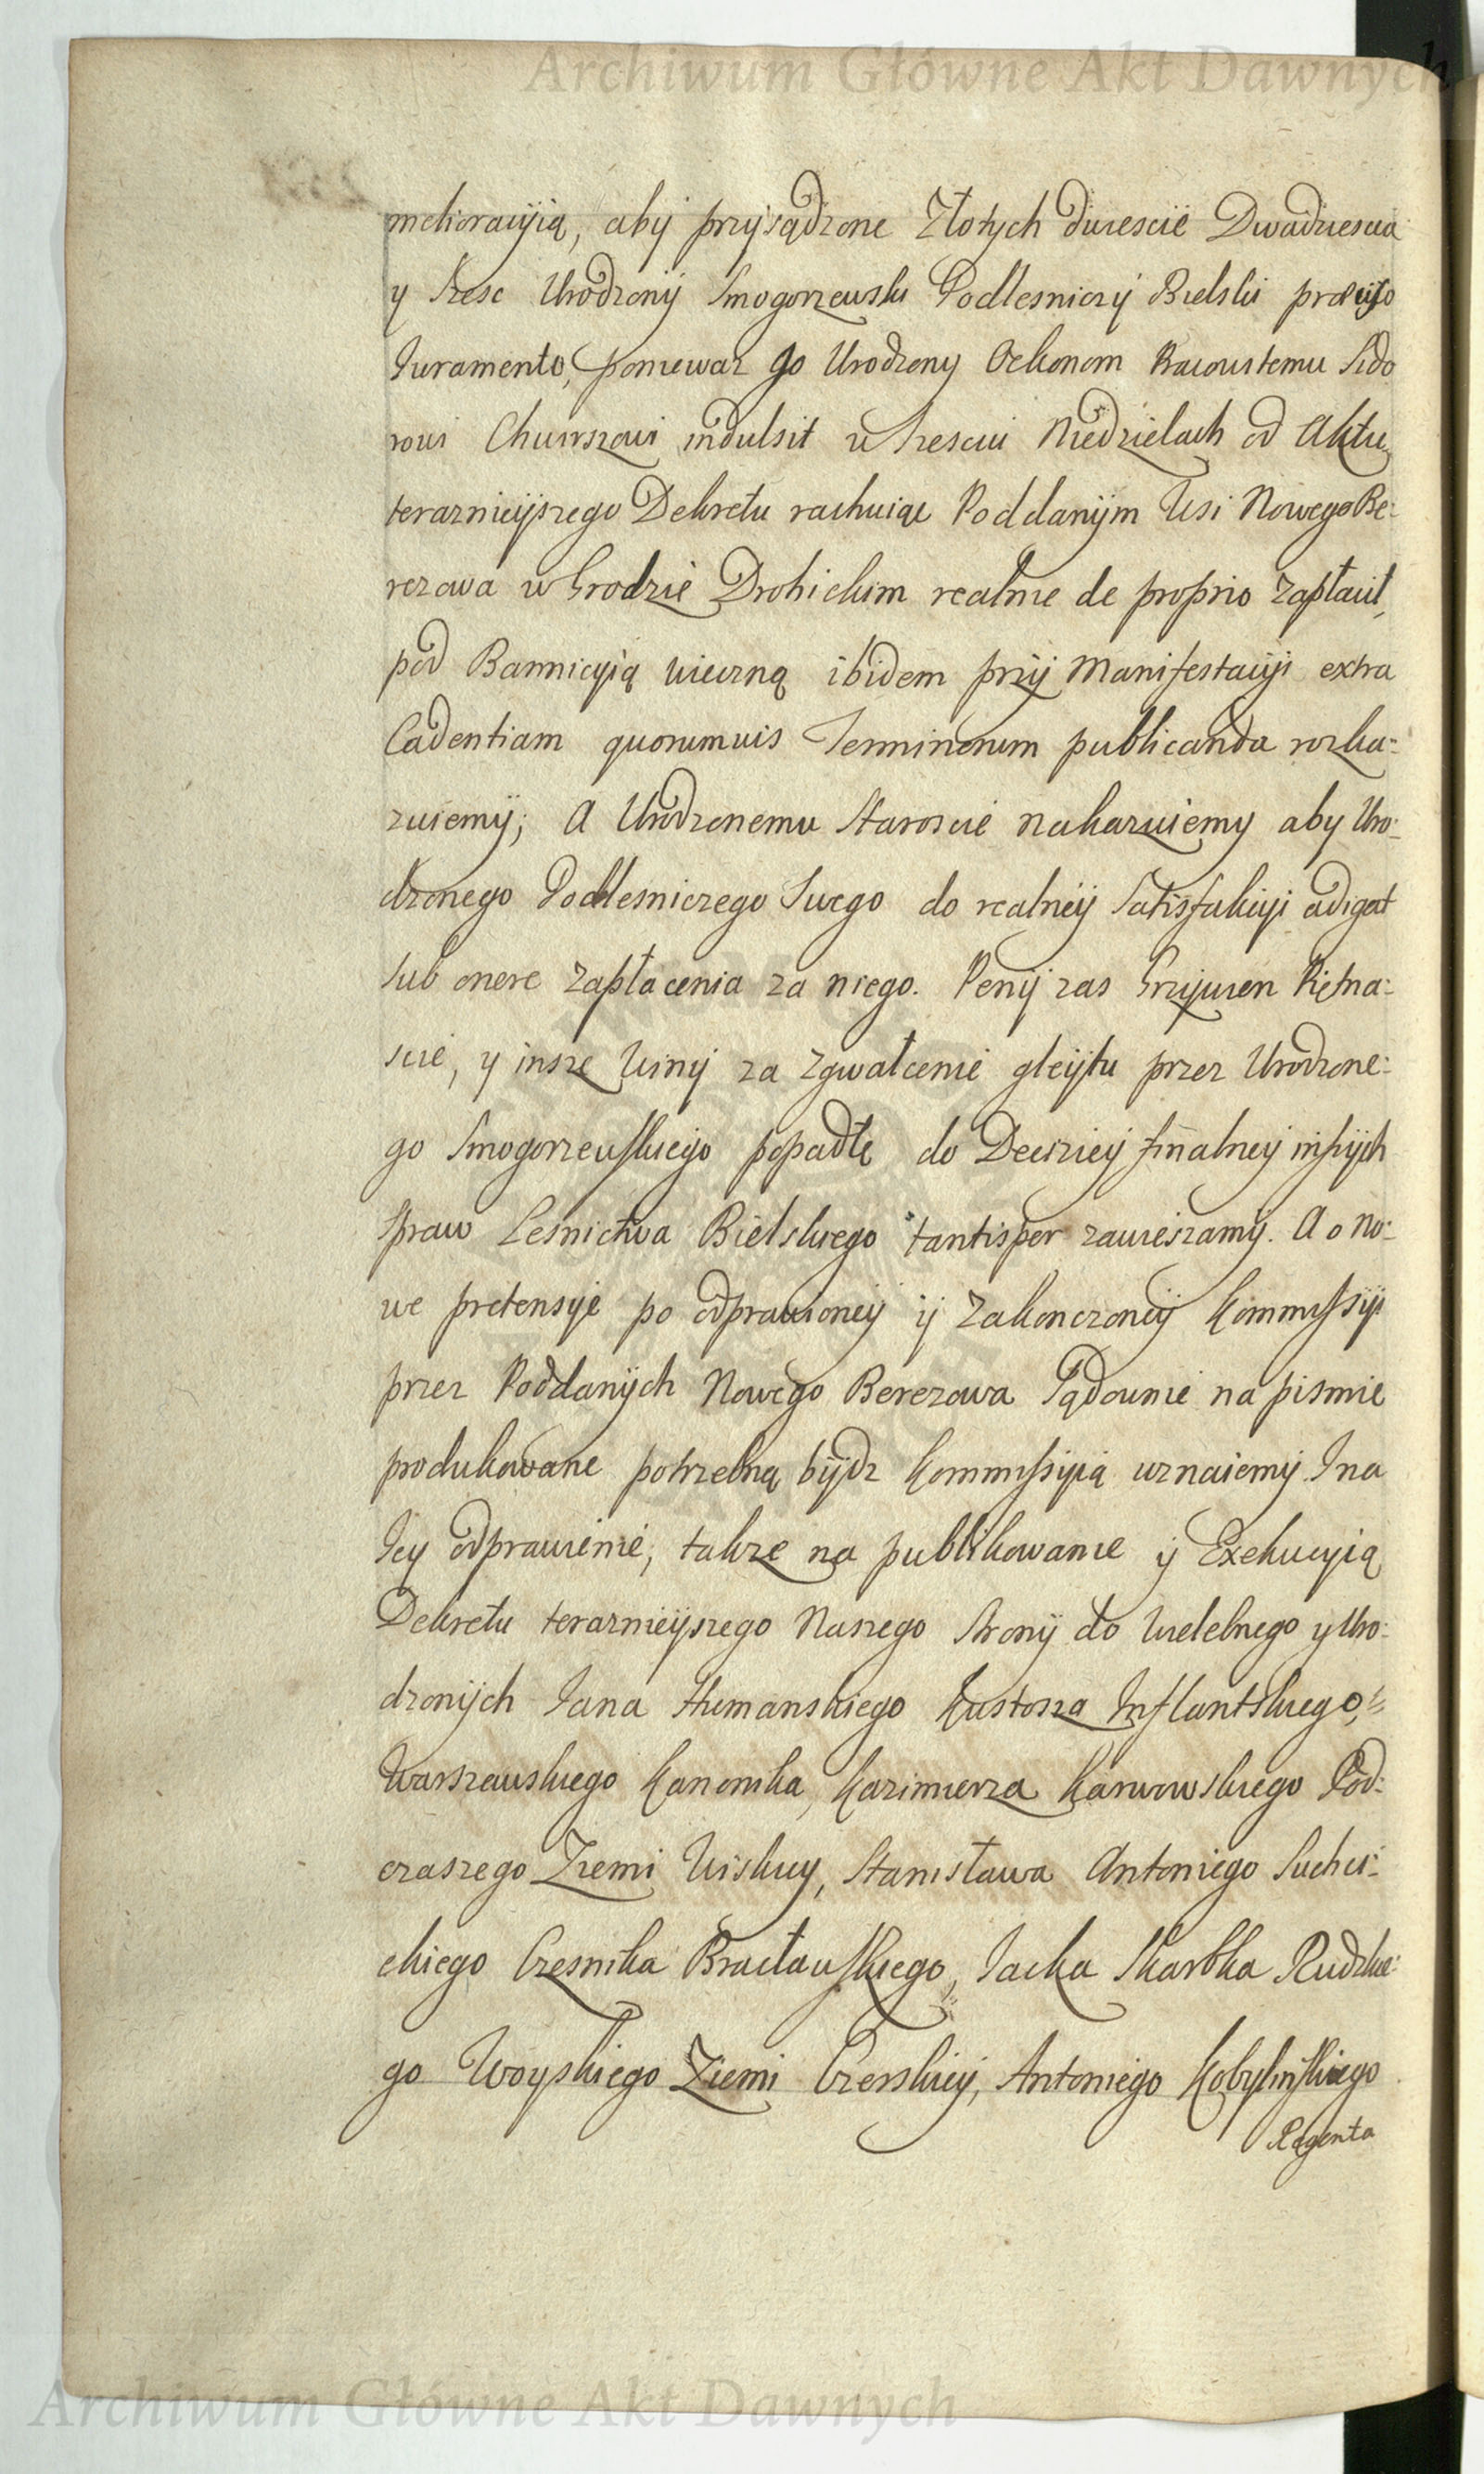 Archiwum Główne Akt Dawnych
melioracyią, aby przysądzone Złotych dwiescie Dwadziescia
y szesc Urodzony Smogorzewski Podlesniczy Bielski prævio
Iuramento, poniewaz go Urodzony Oekonom Bacoustemu Sido
rowi Chwirszowi indulsit w szesciu Niedzielach od Aktu
teraznieyszego Dekretu rachuiąc Poddanym Wsi Nowego Be:
rezowa w Grodzie Drohickim realnie de proprio zapłacił,
pod Bannicyią wieczną ibidem przy Manifestacyi extra
Cadentiam quorumvis Terminorum publicanda rozka:
zuiemy; A Urodzonemu Staroscie nakazuiemy aby Uro:
dzonego Podlesniczego Swego do realney Satisfakcyi adigat
sub onere zapłacenia za niego. Peny zas Grzywien Piętna:
scie, y insze Winy za zgwałcenie gleytu przez Urodzone:
go Smogorzewskiego popadłe do Deciziey finalney inszych
spraw Lesnictwa Bielskiego tantisper zawieszamy. A o no:
we pretensye po odprawioney y zakonczoney Kommissyi
przez Poddanych Nowego Berezowa Sądownie na pismie
produkowane potrzebną bydz Kommissyią uznaiemy. I na
Iey odprawienie, takze na publikowanie y Exekucyią
Dekretu teraznieyszego Naszego Strony do Wielebnego y Uro:
dzonych Iana Humanskiego Kustosza Inflantskiego,
Warszawskiego Kanonika, Kazimierza Karwowskiego Pod:
czaszego Ziemi Wiskiey, Stanisława Antoniego Suchci:
ckiego Czesnika Bracławskiego, Iacka Skarbka Rudzkie:
go Woyskiego Ziemi Czerskiey, Antoniego Kobylinskiego
Regenta
Archiwum Główne Akt Dawnych